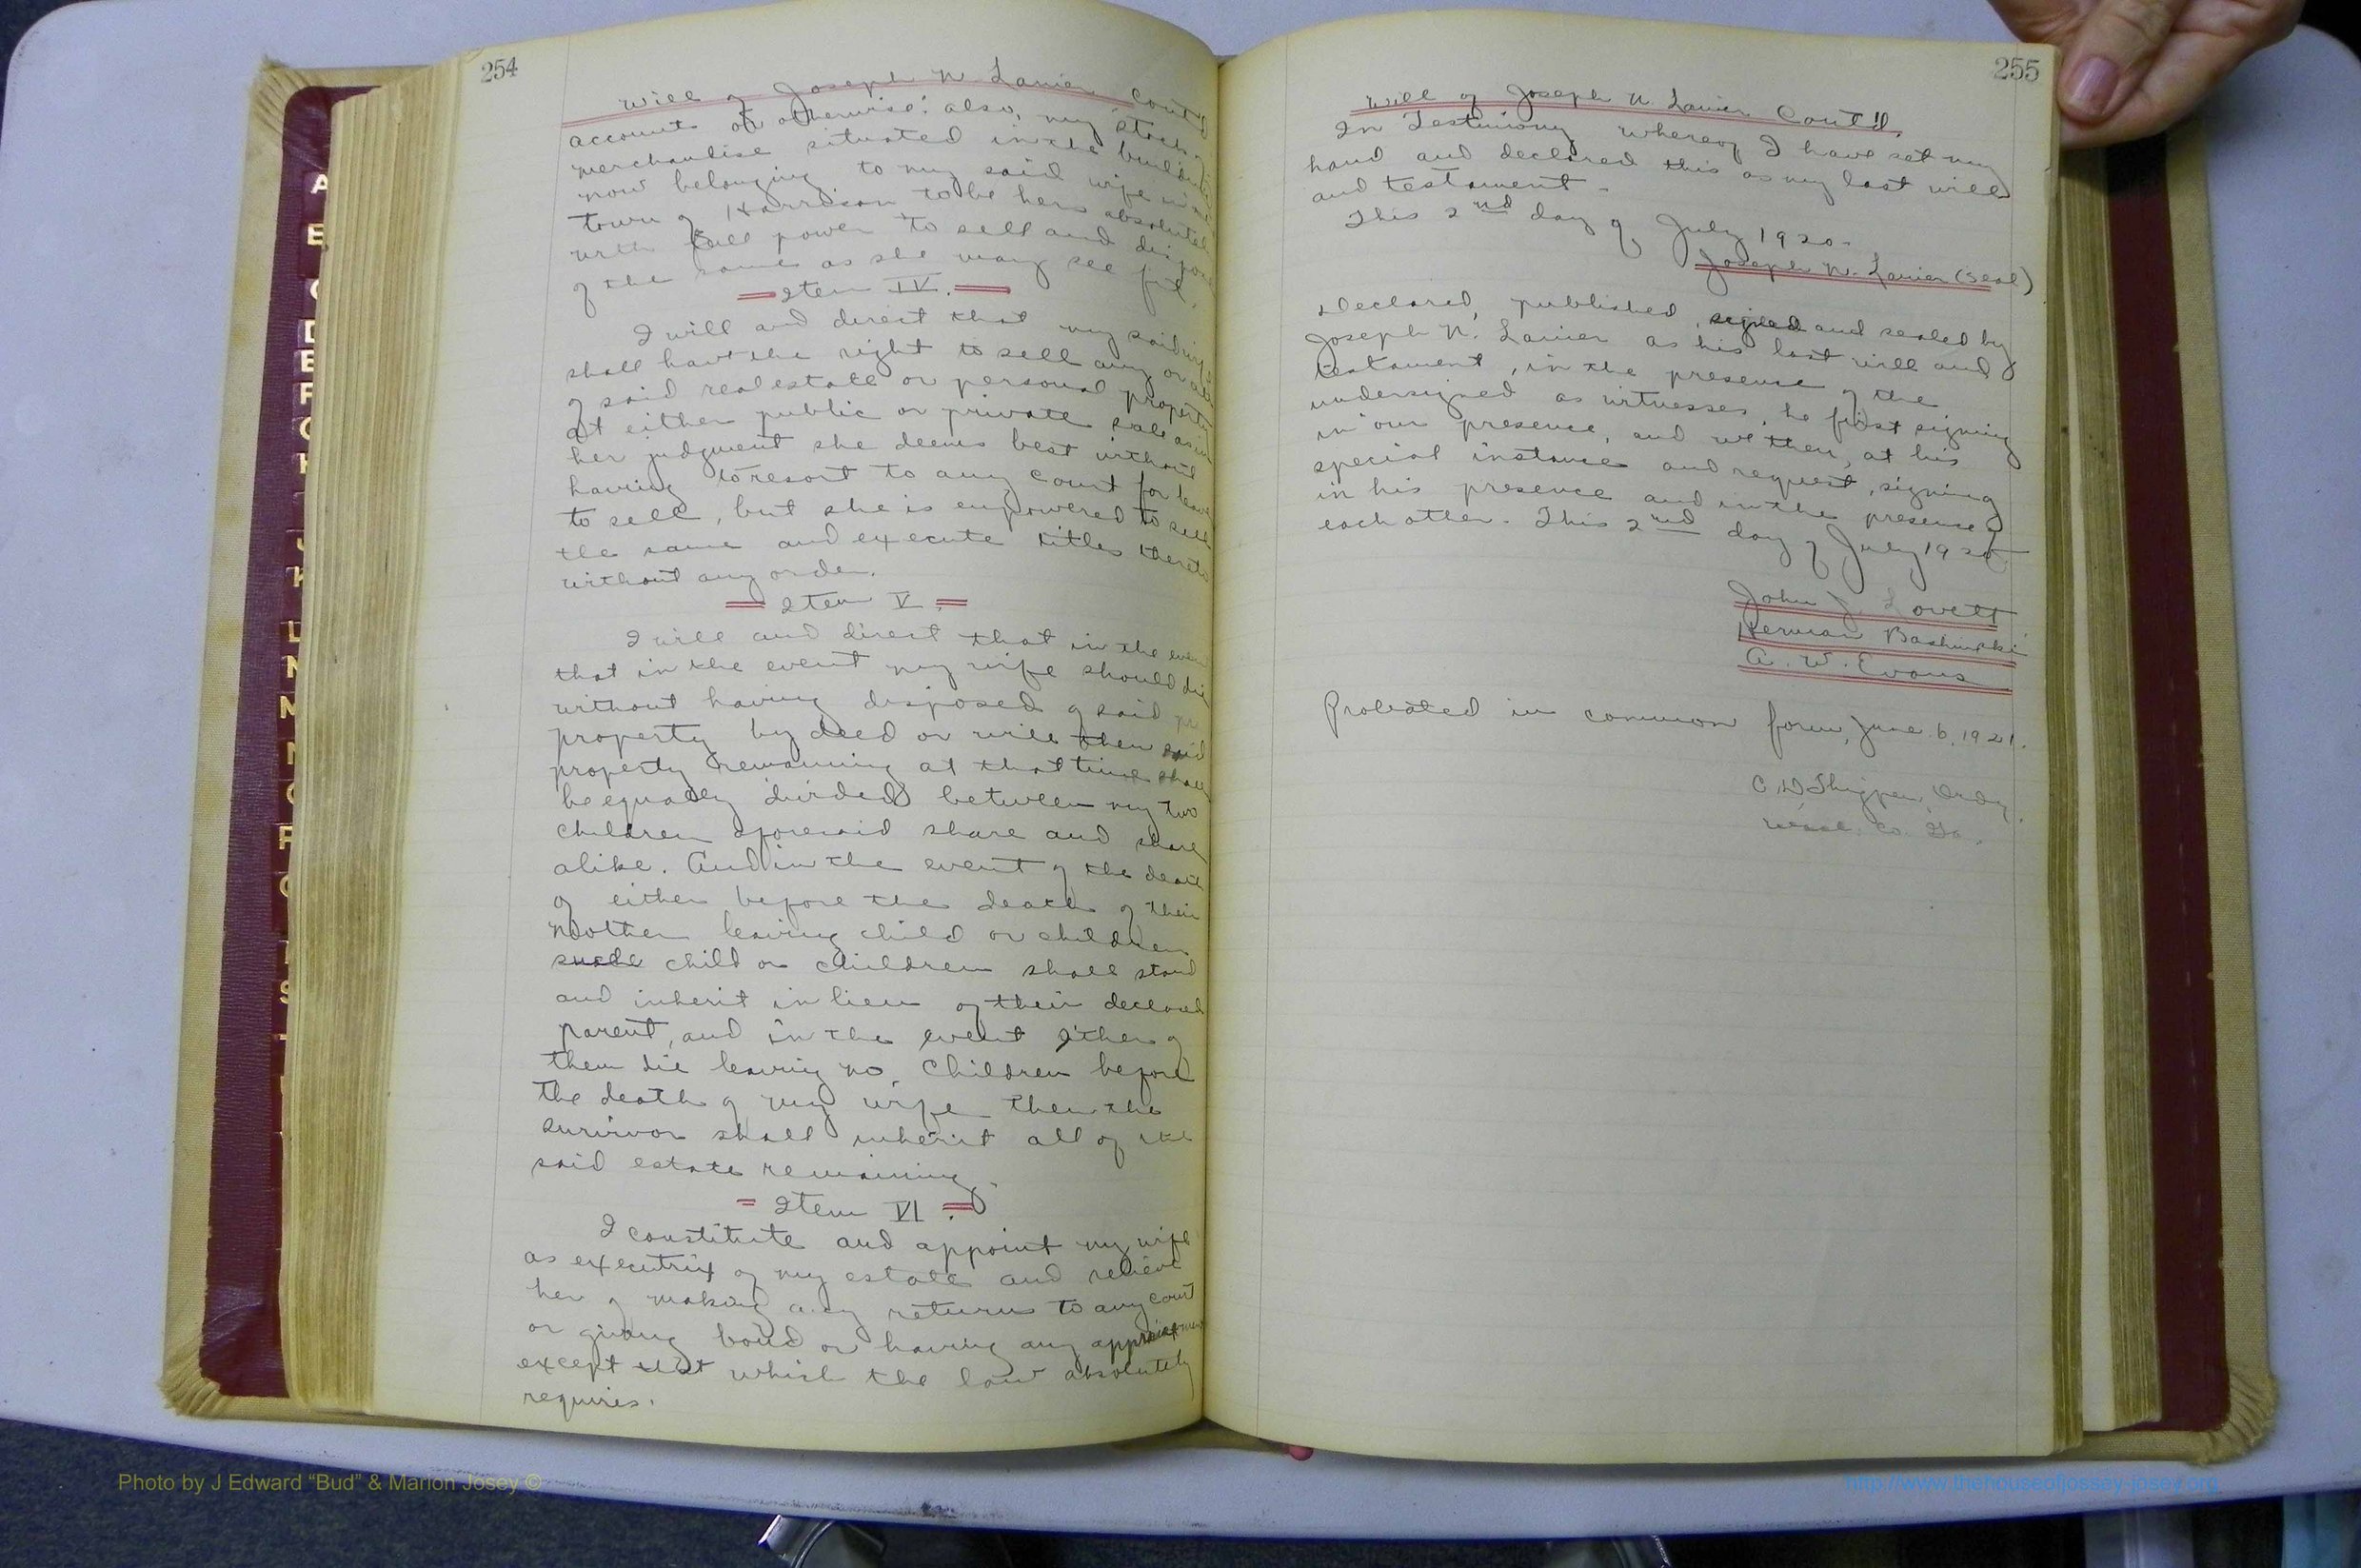 254
Will of Joseph N. Lanier Cont'd
accounts or otherwise: also, my stock of
merchandise situated in the building
now belonging to my said wife in the
town of Harrison to be hers absolutely
with full power to sell and dispose
of the same as she may see fit.
Item IV.
I will and direct that my said wife
shall have the right to sell any or all
of said real estate or personal property
at either public or private sale as in
her judgment she deems best without
having to resort to any court for leave
to sell, but she is empowered to sell
the same and execute titles thereto
without any order.
Item V.
I will and direct that in the event
that in the event my wife should die
without having disposed of said
property by deed or will then said
property remaining at that time shall
be equally divided between my two
children aforesaid share and share
alike. And in the event of the death
of either before the death of their
Mother leaving child or children
such child or children shall stand
and inherit in lieu of their deceased
parent, and in the event either of
them die leaving no children before
the death of my wife then the
survivor shall inherit all of the
said estate remaining.
Item VI.
I constitute and appoint my wife
as executrix of my estate and relieve
her of making any returns to any court
or giving bond or having any appraisement
except that which the law absolutely
requires.
255
Will of Joseph N. Lanier Cont'd.
In Testimony whereof I have set my
hand and declared this as my last will
and testament.
This 2nd day of July 1920.
Joseph N. Lanier (Seal)
Declared, published, signed and sealed by
Joseph N. Lanier as his last will and
testament, in the presence of the
undersigned as witnesses, he first signing
in our presence, and we then, at his
special instance and request, signing
in his presence and in the presence of
each other. This 2nd day of July 1920
John J. Lovett
Herman Bashinski
A. W. Evans
Probated in common form, June 6, 1921.
C. D. Thigpen, Ordy.
Wash. Co. Ga.
A
E
L
N
Photo by J Edward “Bud” & Marion Josey ©
http://www.thehouseofjossey-josey.org